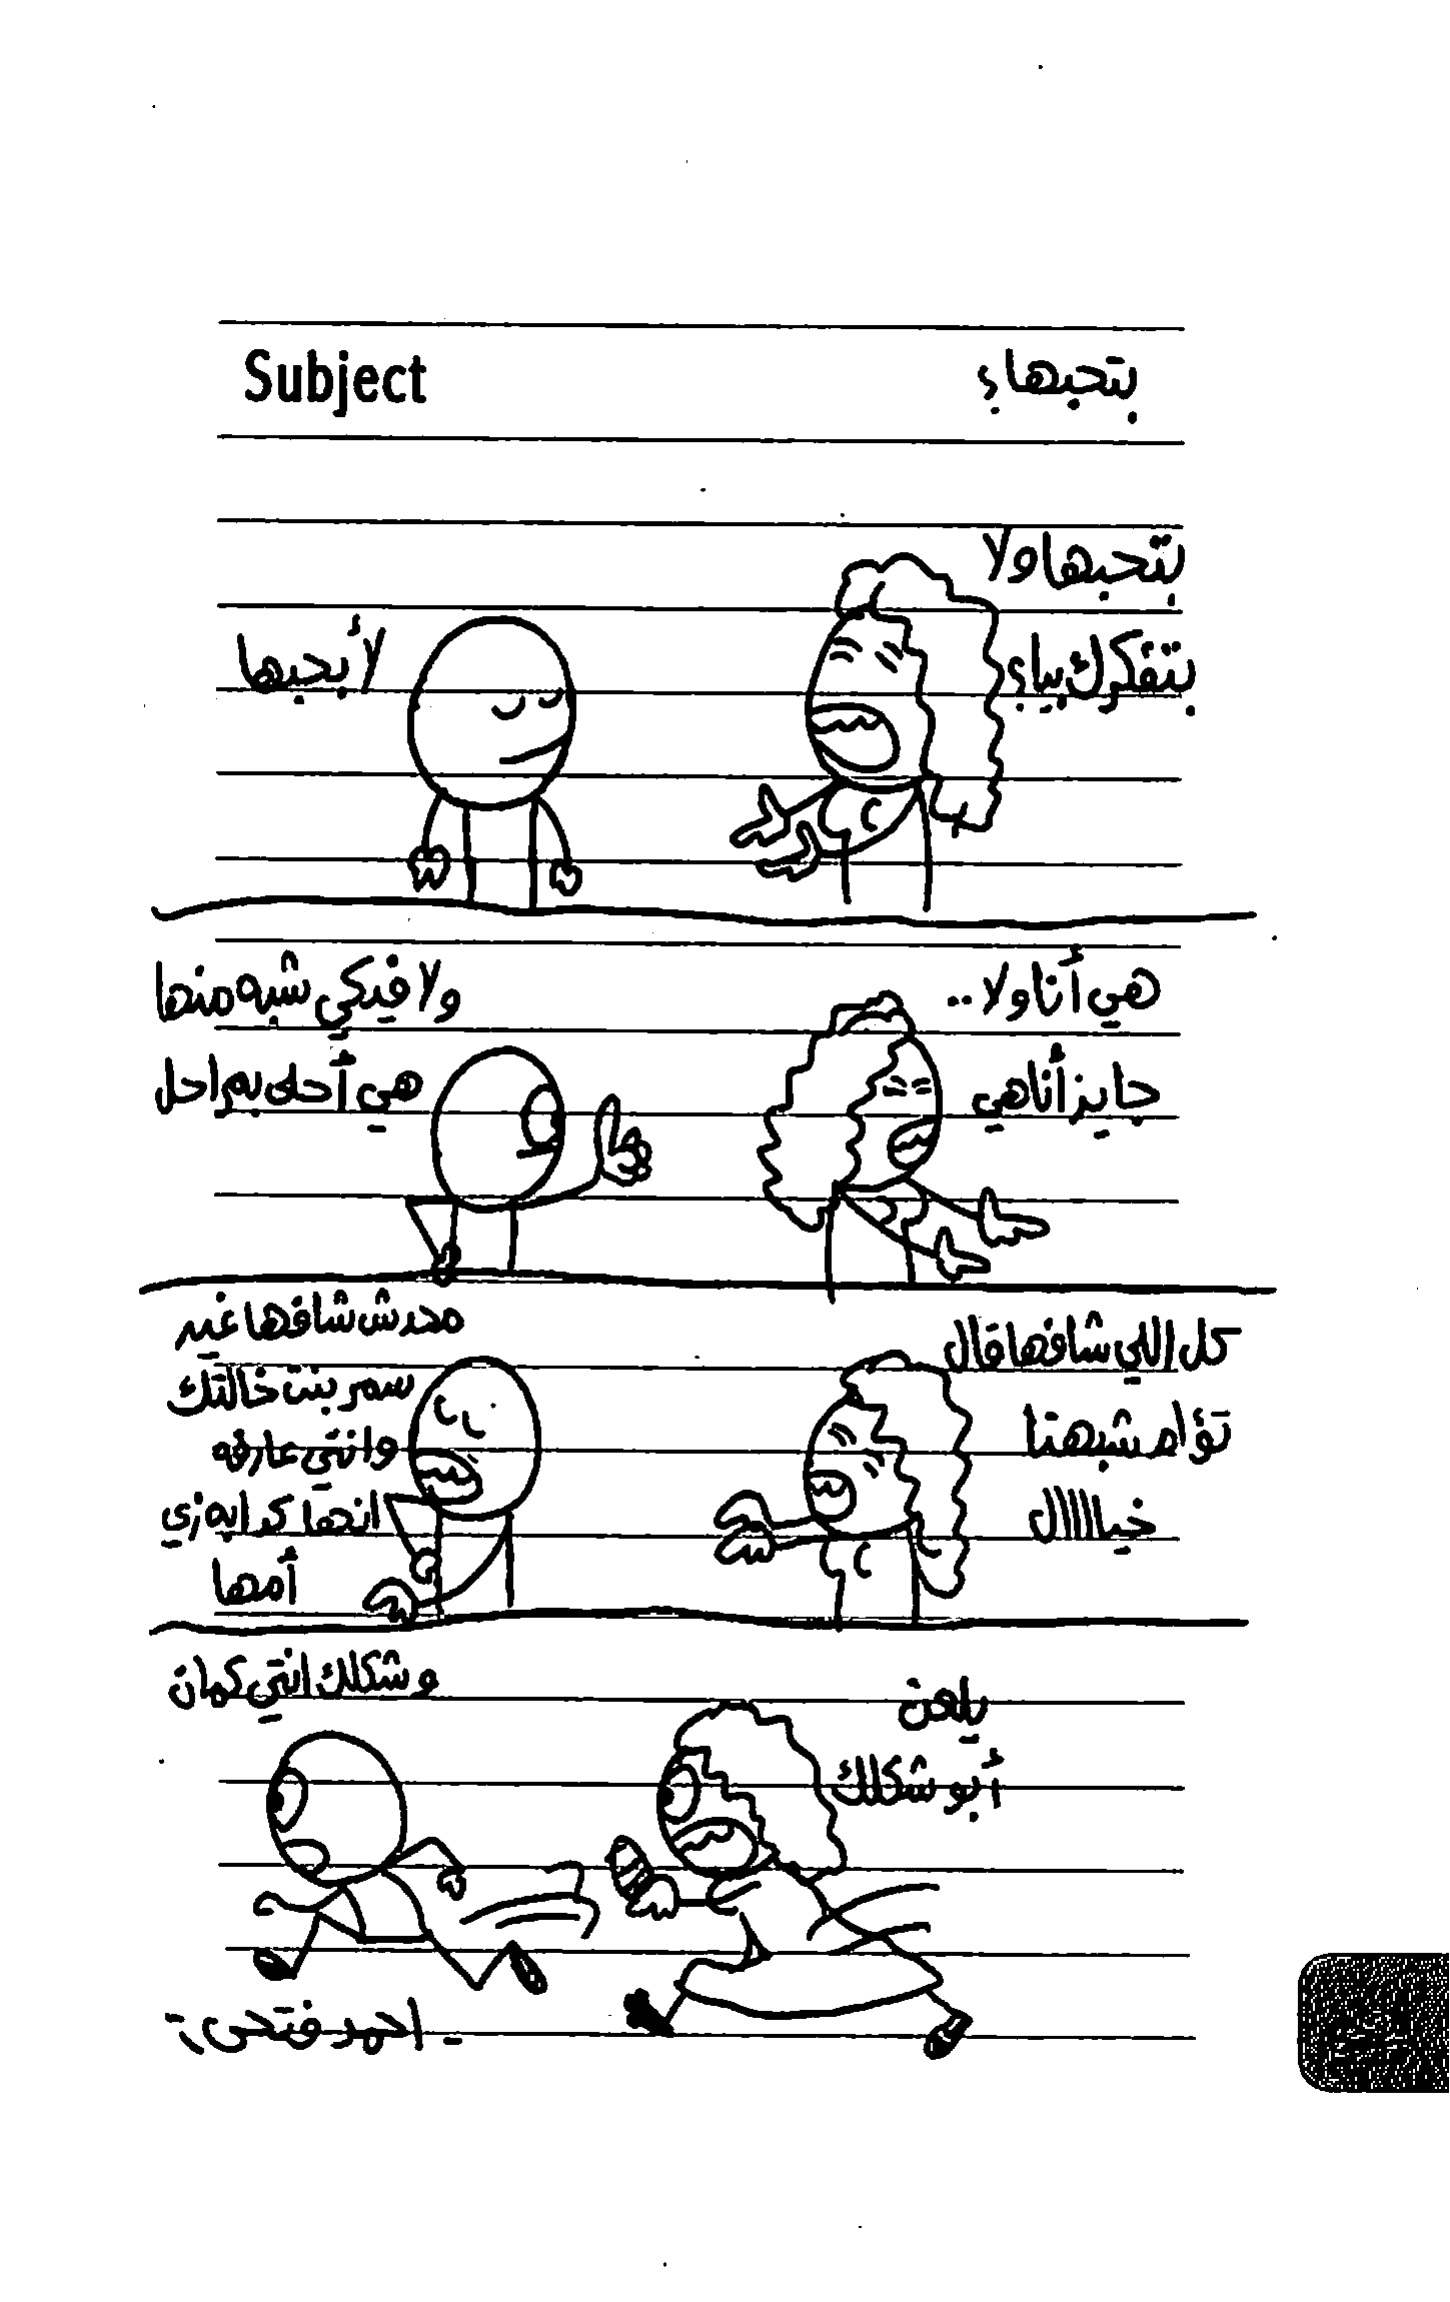 Subject
بتحبها؟
بتحبها ولا
بتفكرك بيا؟
لأ بحبها
هي أنا ولا ..
جايز أنا هي
ولا فيكي شبه منها
هي أحلى بمراحل
كل اللي شافها قال
تؤام شبهنا
خيااااال
محدش شافها غير
سمر بنت خالتك
وانتي عارفه
انها كدابه زي
أمها
يلعن
أبو شكلك
وشكلك انتي كمان
- احمد فتحى :-